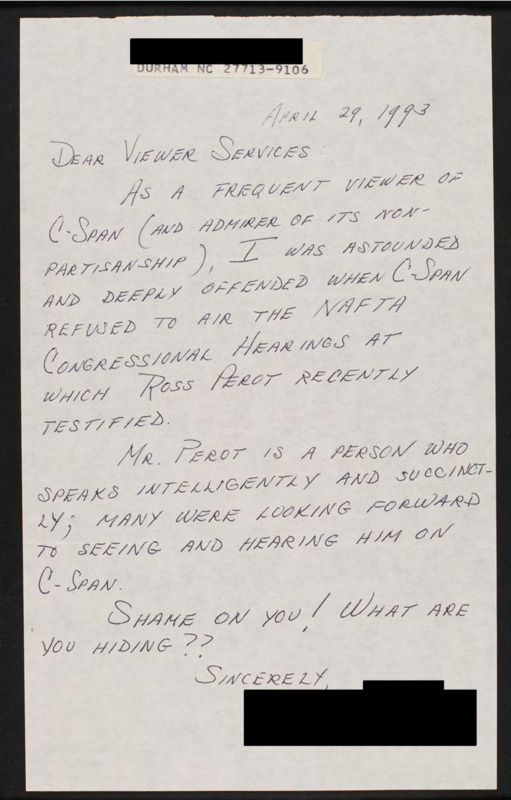 DURHAM NC 27713-9106
APRIL 29, 1993
DEAR VIEWER SERVICES:
AS A FREQUENT VIEWER OF
C-SPAN (AND ADMIRER OF ITS NON-
PARTISANSHIP), I WAS ASTOUNDED
AND DEEPLY OFFENDED WHEN C-SPAN
REFUSED TO AIR THE NAFTA
CONGRESSIONAL HEARINGS AT
WHICH ROSS PEROT RECENTLY
TESTIFIED.
MR. PEROT IS A PERSON WHO
SPEAKS INTELLIGENTLY AND SUCCINCT-
LY; MANY WERE LOOKING FORWARD
TO SEEING AND HEARING HIM ON
C-SPAN.
SHAME ON YOU! WHAT ARE
YOU HIDING??
SINCERELY,